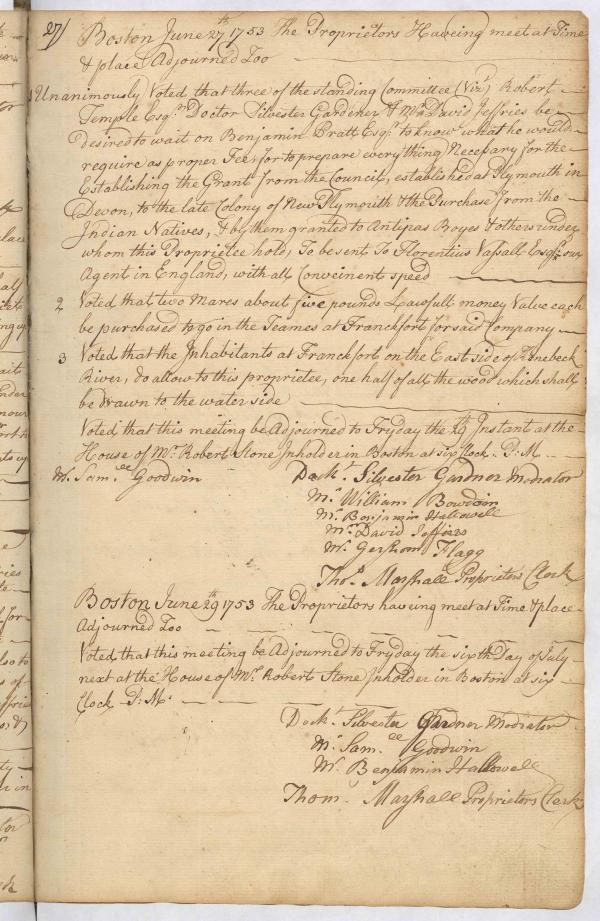 27/ Boston June 27th 1753 The Proprietors Haveing meet at Time
& place Adjourned Too
Unanimously Voted that three of the standing Committee (Vizt) Robert
Temple Esqr Doctor Silvester Gardener & Mr David Jeffries be
desired to wait on Benjamin Pratt Esqr to know what he would
require as proper Fee, for to prepare everything Necessary for the
Establishing the Grant from the Council, established at Plymouth in
Devon, to the late Colony of New Plymouth & the Purchase from the
Indian Natives, & by them granted to Antipas Boyes & others under
whom this Proprietee hold, To be sent To Florentius Vassall Esqr our
Agent in England, with all Conveinent speed
2 Voted that two Mares about five pounds Lawfull money Value each
be purchased to go in the Teames at Franckfort for said Company
3 Voted that the Inhabitants at Franckfort on the East side of Kenebeck
River, do allow to this proprietee, one half of all the wood which shall
be drawn to the water side
Voted that this meeting be Adjourned to Fryday the 29 Instant at the
House of Mr Robert Stone Inholder in Boston at six Clock P:M
Mr Samll Goodwin Doctr Silvester Gardner Modiator
Mr William Bowdoin
Mr Benjamin Hallowell
Mr David Jeffries
Mr Gershom Flagg
Thos Marshall Proprietors Clerk
Boston June 29 1753 The Proprietors haveing meet at Time & place
Adjourned Too
Voted that this meeting be Adjourned to Fryday the sixth Day of July
next at the House of Mr Robert Stone Inholder in Boston at six
Clock P:M:
Doctr Silvester Gardner Modiator
Mr Samll Goodwin
Mr Benjamin Hallowell
Thom Marshall Proprietors Clerk